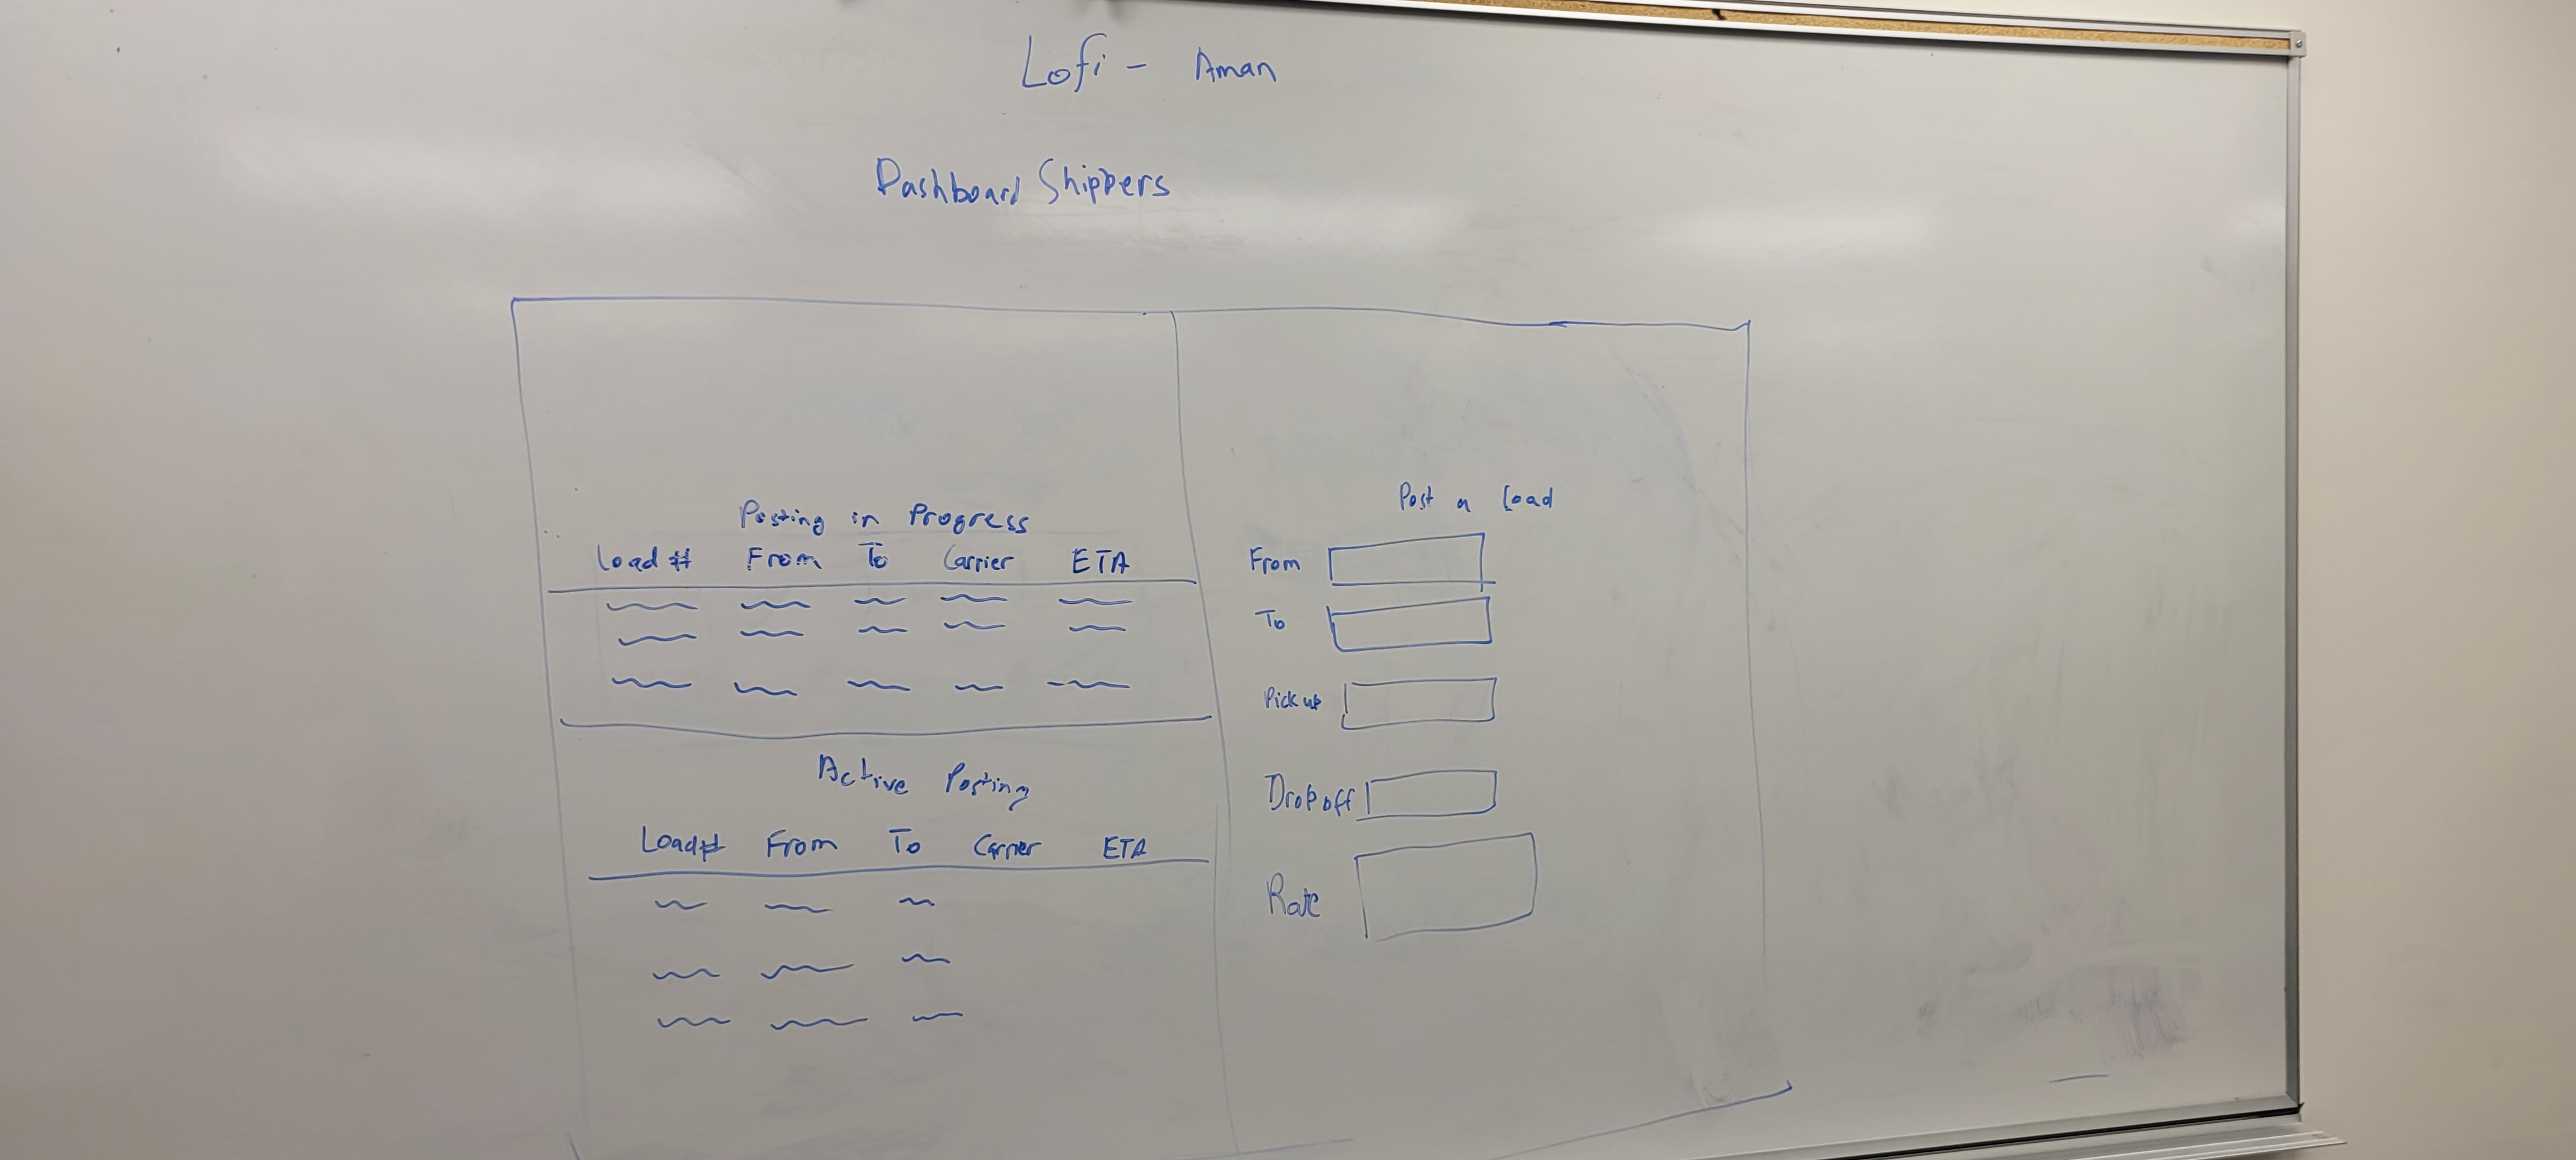 Lofi - Aman
Dashboard Shippers
Posting in Progress
Load # From To Carrier ETA
Active Posting
Load# From To Carrier ETA
Post a Load
From
To
Pick up
Drop off
Rate